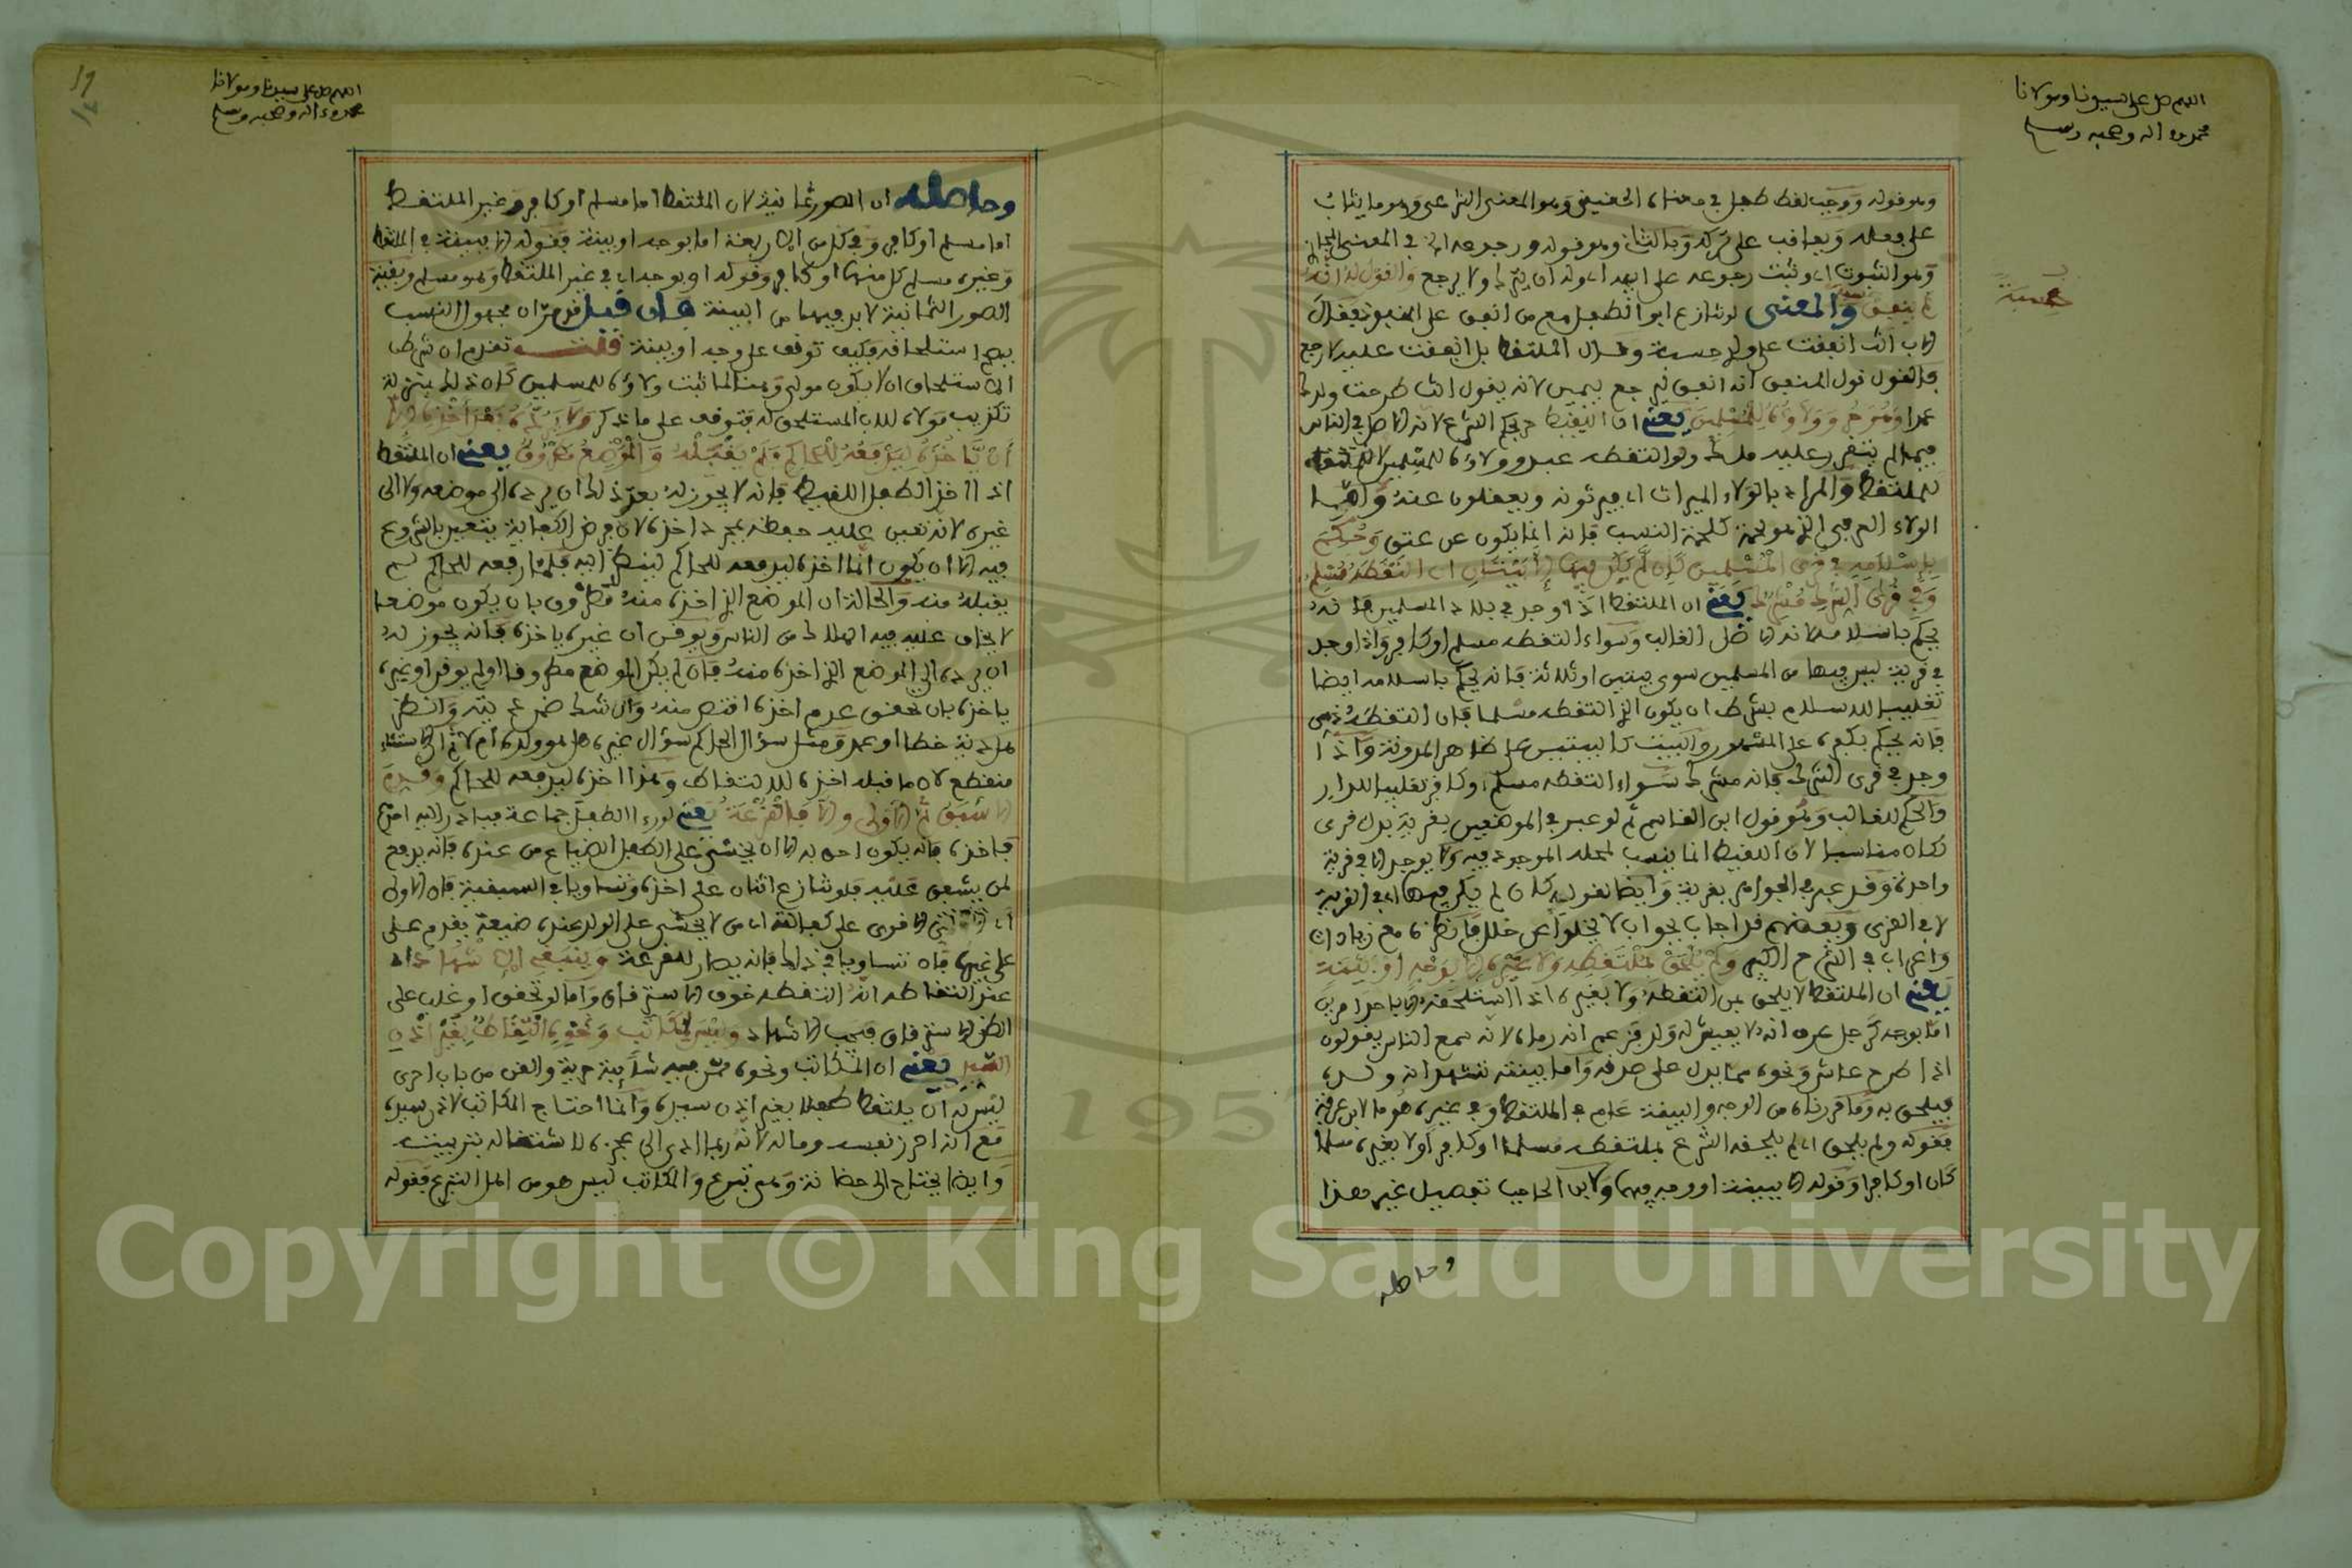 اللهم صل على سيدنا ومولانا
محمد وءاله وصحبه وسلم
وهو قوله ووجب لقط طفل في معناه الحقيقي وهو المعنى الشرعي وهو ما يثاب
على فعله ويعاقب على تركه وبالثاني وهو قوله ورجوعه اي في المعنى
وهو الثبوت اي وثبت رجوعه على ابيه اي وله ان يترك ولا يرجع والقول له انه
لم ينفق حسبة والمعنى لو تنازع ابو الطفل مع من انفق على المنبوذ فقال
الاب انت انفقت على ولدي حسبة وقال الملتقط بل انفقت عليه لارجع
فالقول قول المنفق انه انفق ليرجع بيمين لانه يقول انت طرحت ولدك
عمدا وهو حر وولاؤه للمسلمين يعني ان اللقيط حر بحكم الشرع لانه الاصل في الناس
فيما لم يتقرر عليه ملك ولو التقطه عبد وولاؤه للمسلمين لا
للملتقط والمراد بالولاء الميراث اي فيرثونه ويعقلون عنه وليس
الولاء العرفي الذي هو لحمة كلحمة النسب فانه انما يكون عن عتق وحكم
باسلامه في قرى المسلمين كان لم يكن فيها الا بيتان ان التقطه مسلم
وفي قرى الشرك مشرك يعني ان الملتقط اذا وجد في بلاد المسلمين فانه
يحكم باسلامه لانه الاصل الغالب وسواء التقطه مسلم او كافر واذا وجد
في قرية ليس فيها من المسلمين سوى بيتين او ثلاثة فانه يحكم باسلامه ايضا
تغليبا للاسلام بشرط ان يكون الذي التقطه مسلما فان التقطه ذمي
فانه يحكم بكفره على المشهور والبيت كالبيتين على ظاهر المدونة واذا
وجد في قرى الشرك فانه مشرك سواء التقطه مسلم او كافر تغليبا للدار
والحكم للغالب وهو قول ابن القاسم ثم لو عبر في الموضعين بقرية بدل قرى
لكان مناسبا لان اللقيط انما ينسب لمحله الموجود فيه ولا يوجد الا في قرية
واحدة وقد عبر في الجواهر بقرية وايضا لقوله كان لم يكن فيها اي في القرية
لا في القرى وبعضهم قد اجاب بجواب لا يخلوا عن خلل فانظره مع زيادات
واعراب في الشرح الكبير ولم يلحق بملتقطه ولا غيره الا بوجه او ببينة
يعني ان الملتقط لا يلحق بمن التقطه ولا بغيره اذا استلحقه الا باحد امرين
اما بوجه كرجل عرف انه لا يعيش له ولد فزعم انه رماه لانه سمع الناس يقولون
اذا طرح عاش ونحوه مما يدل على صدقه واما ببينة تشهد انه ولده
فيلحق به وما قررناه من الوجه والبينة عام في الملتقط وفي غيره هو ما لابن عرفة
فقوله ولم يلحق اي لم يلحقه الشرع بملتقطه مسلما او كافرا ولا بغيره مسلما
كان او كافرا وقوله الا ببينة او وجه فيهما ولابن الحاجب تفصيل غير هذا
وحاصله
حسبة
اللهم صل على سيدنا ومولانا
محمد وءاله وصحبه وسلم
وحاصله ان الصور ثمانية لان الملتقط اما مسلم او كافر وغير الملتقط
اما مسلم او كافر وفي كل من الاربعة اما بوجه او ببينة فقوله الا ببينة في الملتقط
وغيره مسلم كل منهما او كافر وقوله او بوجه اي في غير الملتقط وهو مسلم وبقية
الصور الثمانية لا بد فيها من البينة فان قيل قد مر ان مجهول النسب
يصح استلحاقه فكيف توقف على وجه او بينة قلت تقدم ان شرط
الاستلحاق ان لا يكون مولى وهنا لما ثبت ولاؤه للمسلمين كان ذلك بمنزلة
تكذيب مولاه للاب المستلحق له فتوقف على ما ذكر ولا يرده بعد اخذه الا
ان ياخذه ليرفعه للحاكم فلم يقبله والموضع مطروق يعني ان الملتقط
اذا اخذ الطفل اللقيط فانه لا يجوز له بعد ذلك ان يرده الى موضعه ولا الى
غيره لانه تعين عليه حفظه بمجرد اخذه لان فرض الكفاية يتعين بالشروع
فيه الا ان يكون انما اخذه ليرفعه للحاكم لينظر فيه فلما رفعه للحاكم لم
يقبله منه والحالة ان الموضع الذي اخذه منه مطروق بان يكون موضعا
لا يخاف عليه فيه الهلاك من الناس ويوقن ان غيره ياخذه فانه يجوز له
ان يرده الى الموضع الذي اخذه منه فان لم يكن الموضع مطروقا او لم يوقن ان غيره
ياخذه بان تحقق عدم اخذه اقتص منه وان شك ضمن دية وانظر
هل دية خطا او عمد ومثل سؤال الحاكم سؤال غيره هل هو ولده ام لا ثم الاستثناء
منقطع لان ما قبله اخذه للالتقاط وهذا اخذه ليرفعه للحاكم وقدم
الاسبق ثم الاولى والا فالقرعة يعني لو رءا الطفل جماعة فبادر اليه احدهم
فاخذه فانه يكون احق به الا ان يخشى على الطفل الضياع من عنده فانه يدفع
لمن يشفق عليه فلو تنازع اثنان على اخذه وتساويا في السبقية فان الاولى
اي الاقوى على كفالته اي من لا يخشى على الولد عنده ضيعة يقدم على
على غيره فان تساويا في ذلك فانه يصار للقرعة وينبغي الاشهاد اي
عند التقاطه انه التقطه خوف الاسترقاق واما لو تحقق او غلب على
الظن الاسترقاق فيجب الاشهاد وليس لمكاتب ونحوه التقاط بغير اذن
السيد يعني ان المكاتب ونحوه ممن فيه شائبة حرية والقن من باب احرى
ليس له ان يلتقط طفلا بغير اذن سيده وانما احتاج المكاتب لاذن سيده
مع انه احرز نفسه وماله لانه ربما ادى الى عجزه لاشتغاله بتربيته
وايضا يحتاج الى حضانة وهي تبرع والمكاتب ليس هو من اهل التبرع فقوله